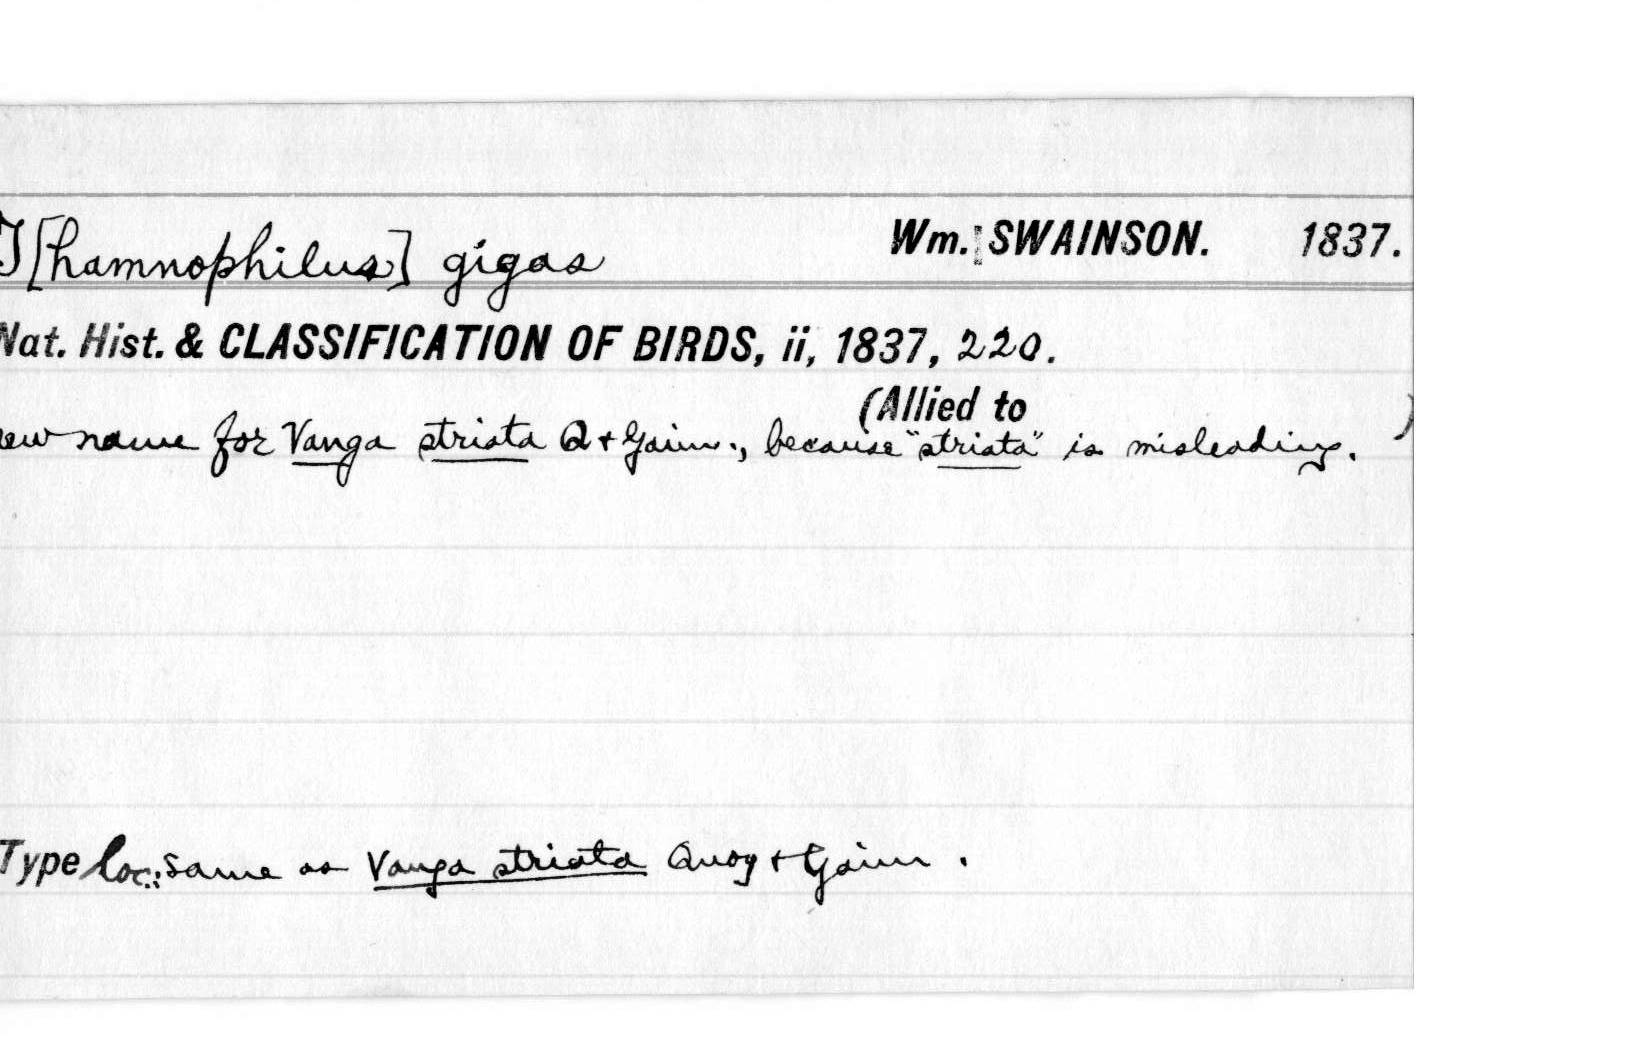 T[hamnophilus] gigas Wm. SWAINSON. 1837.
Nat. Hist. & CLASSIFICATION OF BIRDS, ii, 1837, 220.
(Allied to )
ew name for Vanga striata Q + Gaim., because "striata" is misleading.
Type loc.: same as Vanga striata Quoy + Gaim.